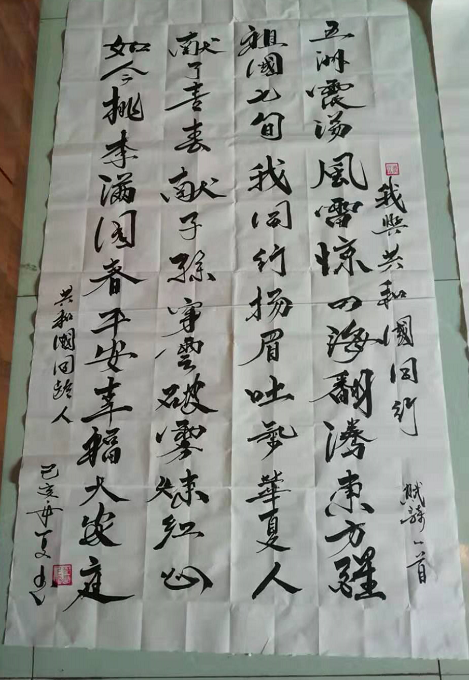 我與共和國同行 賦詩一首
五洲震湯風雷惊四海翻騰東方醒
祖國七旬我同行揚眉吐氣華夏人
献了青春献子孫穿雲破霧煉紅心
如今桃李满園春平安幸福大家庭
共和國同龄人
己亥年夏書